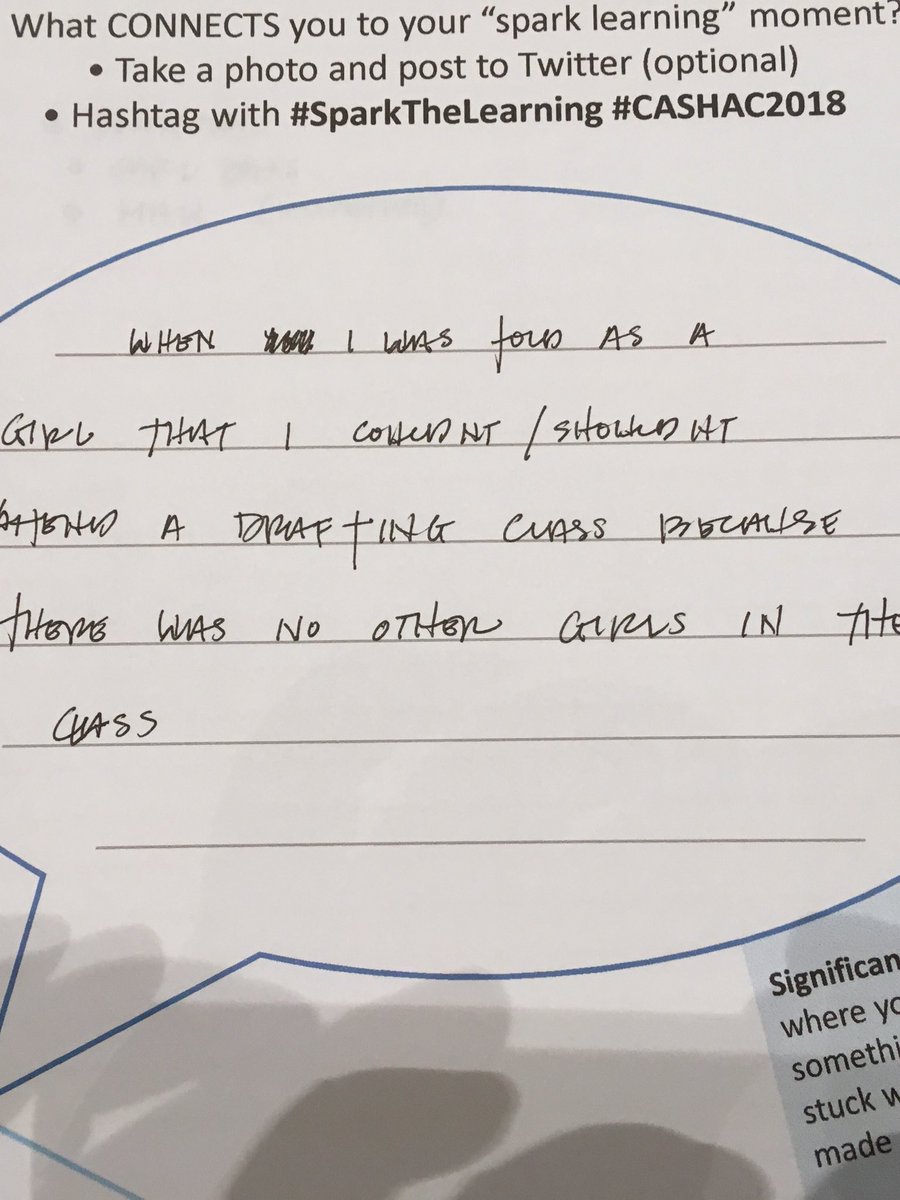 What CONNECTS you to your “spark learning” moment?
• Take a photo and post to Twitter (optional)
• Hashtag with #SparkTheLearning #CASHAC2018
WHEN I WAS TOLD AS A
GIRL THAT I COULDNT / SHOULDNT
ATTEND A DRAFTING CLASS BECAUSE
THERE WAS NO OTHER GIRLS IN THE
CLASS
Significan
where yo
somethi
stuck w
made